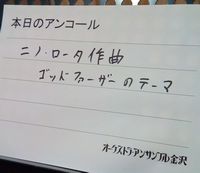 本日のアンコール
ニノ・ロータ作曲
ゴッドファーザーのテーマ
オーケストラ・アンサンブル金沢